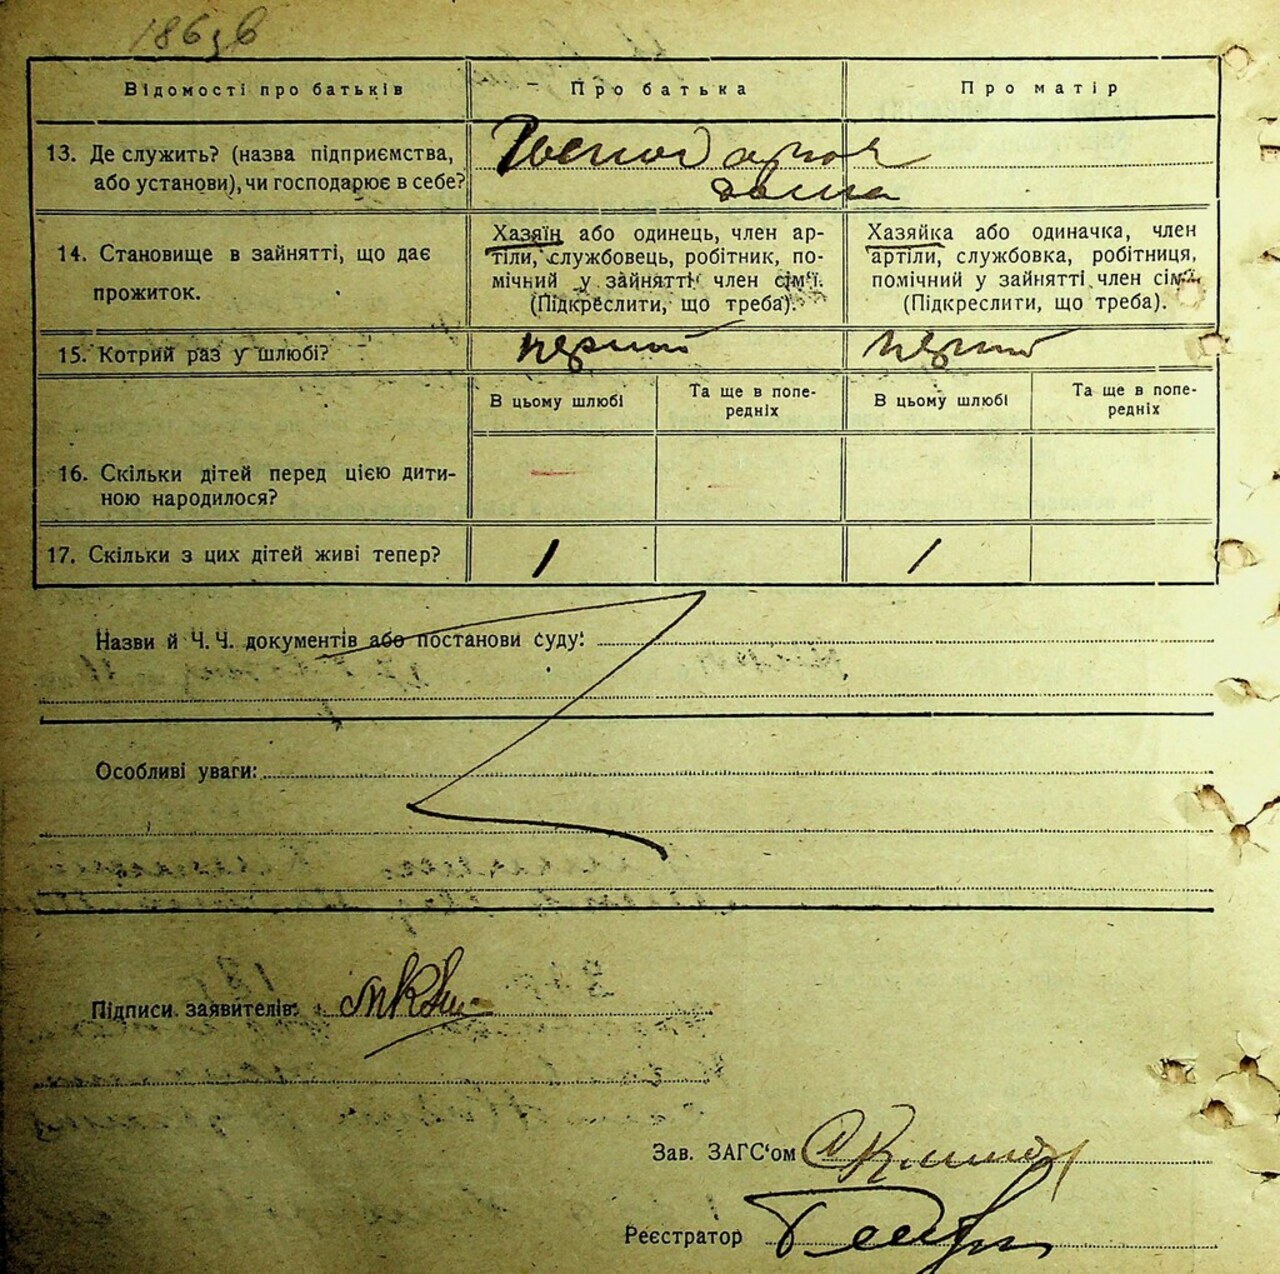 186зв
Відомості про батьків
Про батька
Про матір
13. Де служить? (назва підприємства,
або установи), чи господарює в себе?
Господарюють
дома
14. Становище в зайнятті, що дає
прожиток.
Хазяїн або одинець, член ар-
тіли, службовець, робітник, по-
мічний у зайнятті член сім'ї.
(Підкреслити, що треба).
Хазяйка або одиначка, член
артіли, службовка, робітниця,
помічний у зайнятті член сім'ї.
(Підкреслити, що треба).
15. Котрий раз у шлюбі?
перший
перший
В цьому шлюбі
Та ще в попе-
редніх
В цьому шлюбі
Та ще в попе-
редніх
16. Скільки дітей перед цією дити-
ною народилося?
—
17. Скільки з цих дітей живі тепер?
1
1
Назви й Ч. Ч. документів або постанови суду:
Особливі уваги:
Підписи заявителів:
Зав. ЗАГС'ом
Реєстратор